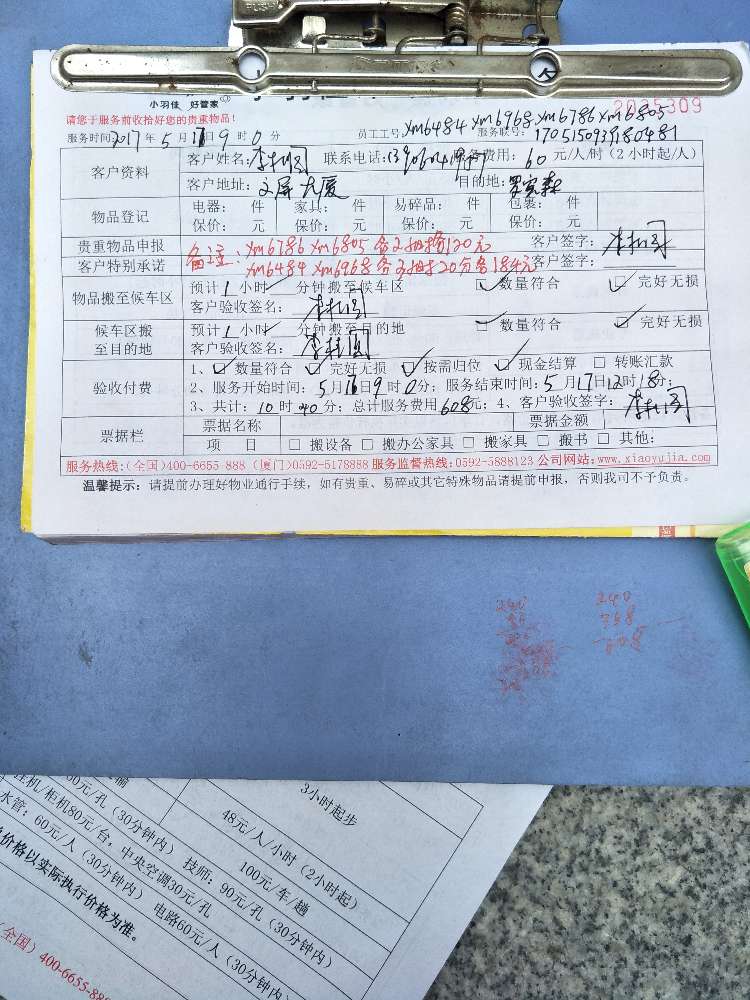 PUSH
小羽佳 好管家
2035309
请您于服务前收拾好您的贵重物品!
员工工号: xm6484 xm6968 xm6786 xm6805
服务时间 2017 年 5 月 17 日 9 时 0 分 服务联号:
客户资料 客户姓名: 联系电话: 费用: 60 元/人/时 (2小时起/人)
客户地址: 文屏 大厦 目的地:
物品登记 电器: 件 家具: 件 易碎品: 件 包裹: 件
保价: 元 保价: 元 保价: 元 保价: 元
贵重物品申报 备注: xm6786 xm6805 各2小时各120元 客户签字:
客户特别承诺 xm6484 xm6968 各3小时20分各184元 客户签字:
物品搬至候车区 预计 1 小时 分钟搬至候车区 ✓ 数量符合 ✓ 完好无损
客户验收签名:
候车区搬至目的地 预计 1 小时 分钟搬至目的地 ✓ 数量符合 ✓ 完好无损
客户验收签名:
验收付费 1、✓ 数量符合 ✓ 完好无损 ✓ 按需归位 ✓ 现金结算 □ 转账汇款
2、服务开始时间: 5 月 17 日 9 时 0 分; 服务结束时间: 5 月 17 日 12 时 18 分;
3、共计: 10 时 40 分; 总计服务费用 608 元; 4、客户验收签字:
票据栏 票据名称 票据金额
项 目 □ 搬设备 □ 搬办公家具 □ 搬家具 □ 搬书 □ 其他:
服务热线:(全国)400-6655 888 (厦门)0592-5178888 服务监督热线:0592-5888123 公司网站:www.xiaoyujia.com
温馨提示: 请提前办理好物业通行手续, 如有贵重、易碎或其它特殊物品请提前申报, 否则我司不予负责。
240 240
368
608
3小时起步
48元/人/小时 (2小时起)
100元/车/趟
元/孔 (30分钟内) 技师: 90元/孔 (30分钟内)
挂机/柜机80元/台, 中央空调30元/孔
水管: 60元/人 (30分钟内) 电路60元/人 (30分钟内)
价格以实际执行价格为准。
(全国) 400-6655-88